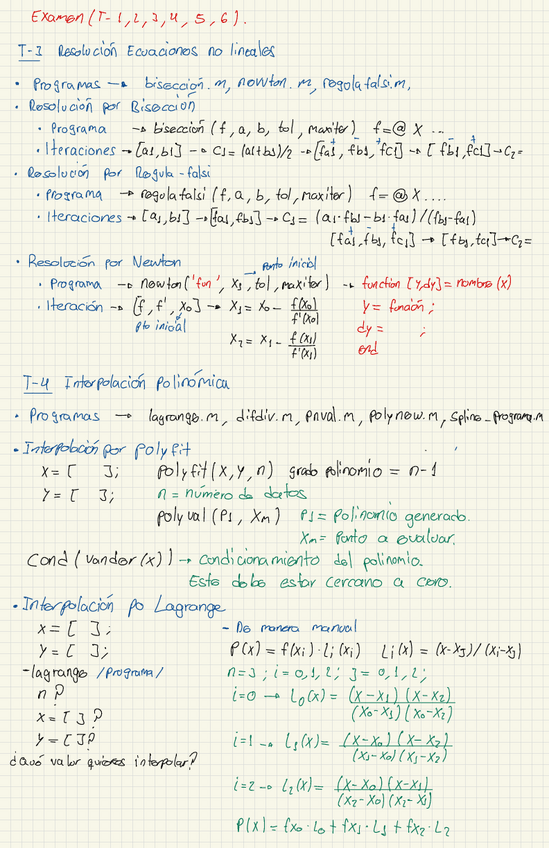 Examen (T-1, 2, 3, 4, 5, 6).
T-3 Resolución Ecuaciones no lineales
• Programas → bisección.m, newton.m, regulafalsi.m,
• Resolución por Bisección
• Programa → bisección (f, a, b, tol, maxiter) f=@ X ...
• Iteraciones → [a1,b1] → C1 = (a1+b1)/2 → [fa1, fb1, fc1] → [fb1, fc1] → C2=
+ - +
- +
• Resolución por Regula-falsi
• Programa → regulafalsi (f, a, b, tol, maxiter) f=@ X ....
• Iteraciones → [a1,b1] → [fa1, fb1] → C1 = (a1·fb1 - b1·fa1) / (fb1-fa1)
+ - +
[fa1, fb1, fc1] → [fb1, fc1] → C2=
• Resolución por Newton
→ Punto inicial
• Programa → newton ('fun', X1, tol, maxiter) → function [y,dy] = nombre (x)
• Iteración → [f, f', X0] → X1 = X0 - f(X0)/f'(X0)
y = función ;
pto inicial
dy = ;
X2 = X1 - f(X1)/f'(X1)
end
T-4 Interpolación polinómica
• Programas → lagrange.m, difdiv.m, pnval.m, polynew.m, spline_programa.m
• Interpolación por polyfit
X = [ ]; polyfit (X, Y, n) grado polinomio = n-1
Y = [ ]; n = número de datos
polyval (P1, Xm) P1 = Polinomio generado.
Xm = Punto a evaluar.
Cond (vander (x)) → condicionamiento del polinomio.
Este debe estar cercano a cero.
• Interpolación po Lagrange
X = [ ]; - De manera manual
Y = [ ]; P(x) = f(xi) · Li (xi) Li (x) = (x-xJ) / (xi-xJ)
- lagrange /Programa/ n=3; i = 0, 1, 2; J = 0, 1, 2;
n ? i=0 → L0(x) = (x-x1) (x-x2) / (x0-x1) (x0-x2)
X = [ ] ?
Y = [ ] ? i=1 → L1(x) = (x-x0) (x-x2) / (x1-x0) (x1-x2)
¿Qué valor quieres interpolar?
i=2 → L2(x) = (x-x0) (x-x1) / (x2-x0) (x2-x1)
P(x) = fx0 · L0 + fx1 · L1 + fx2 · L2